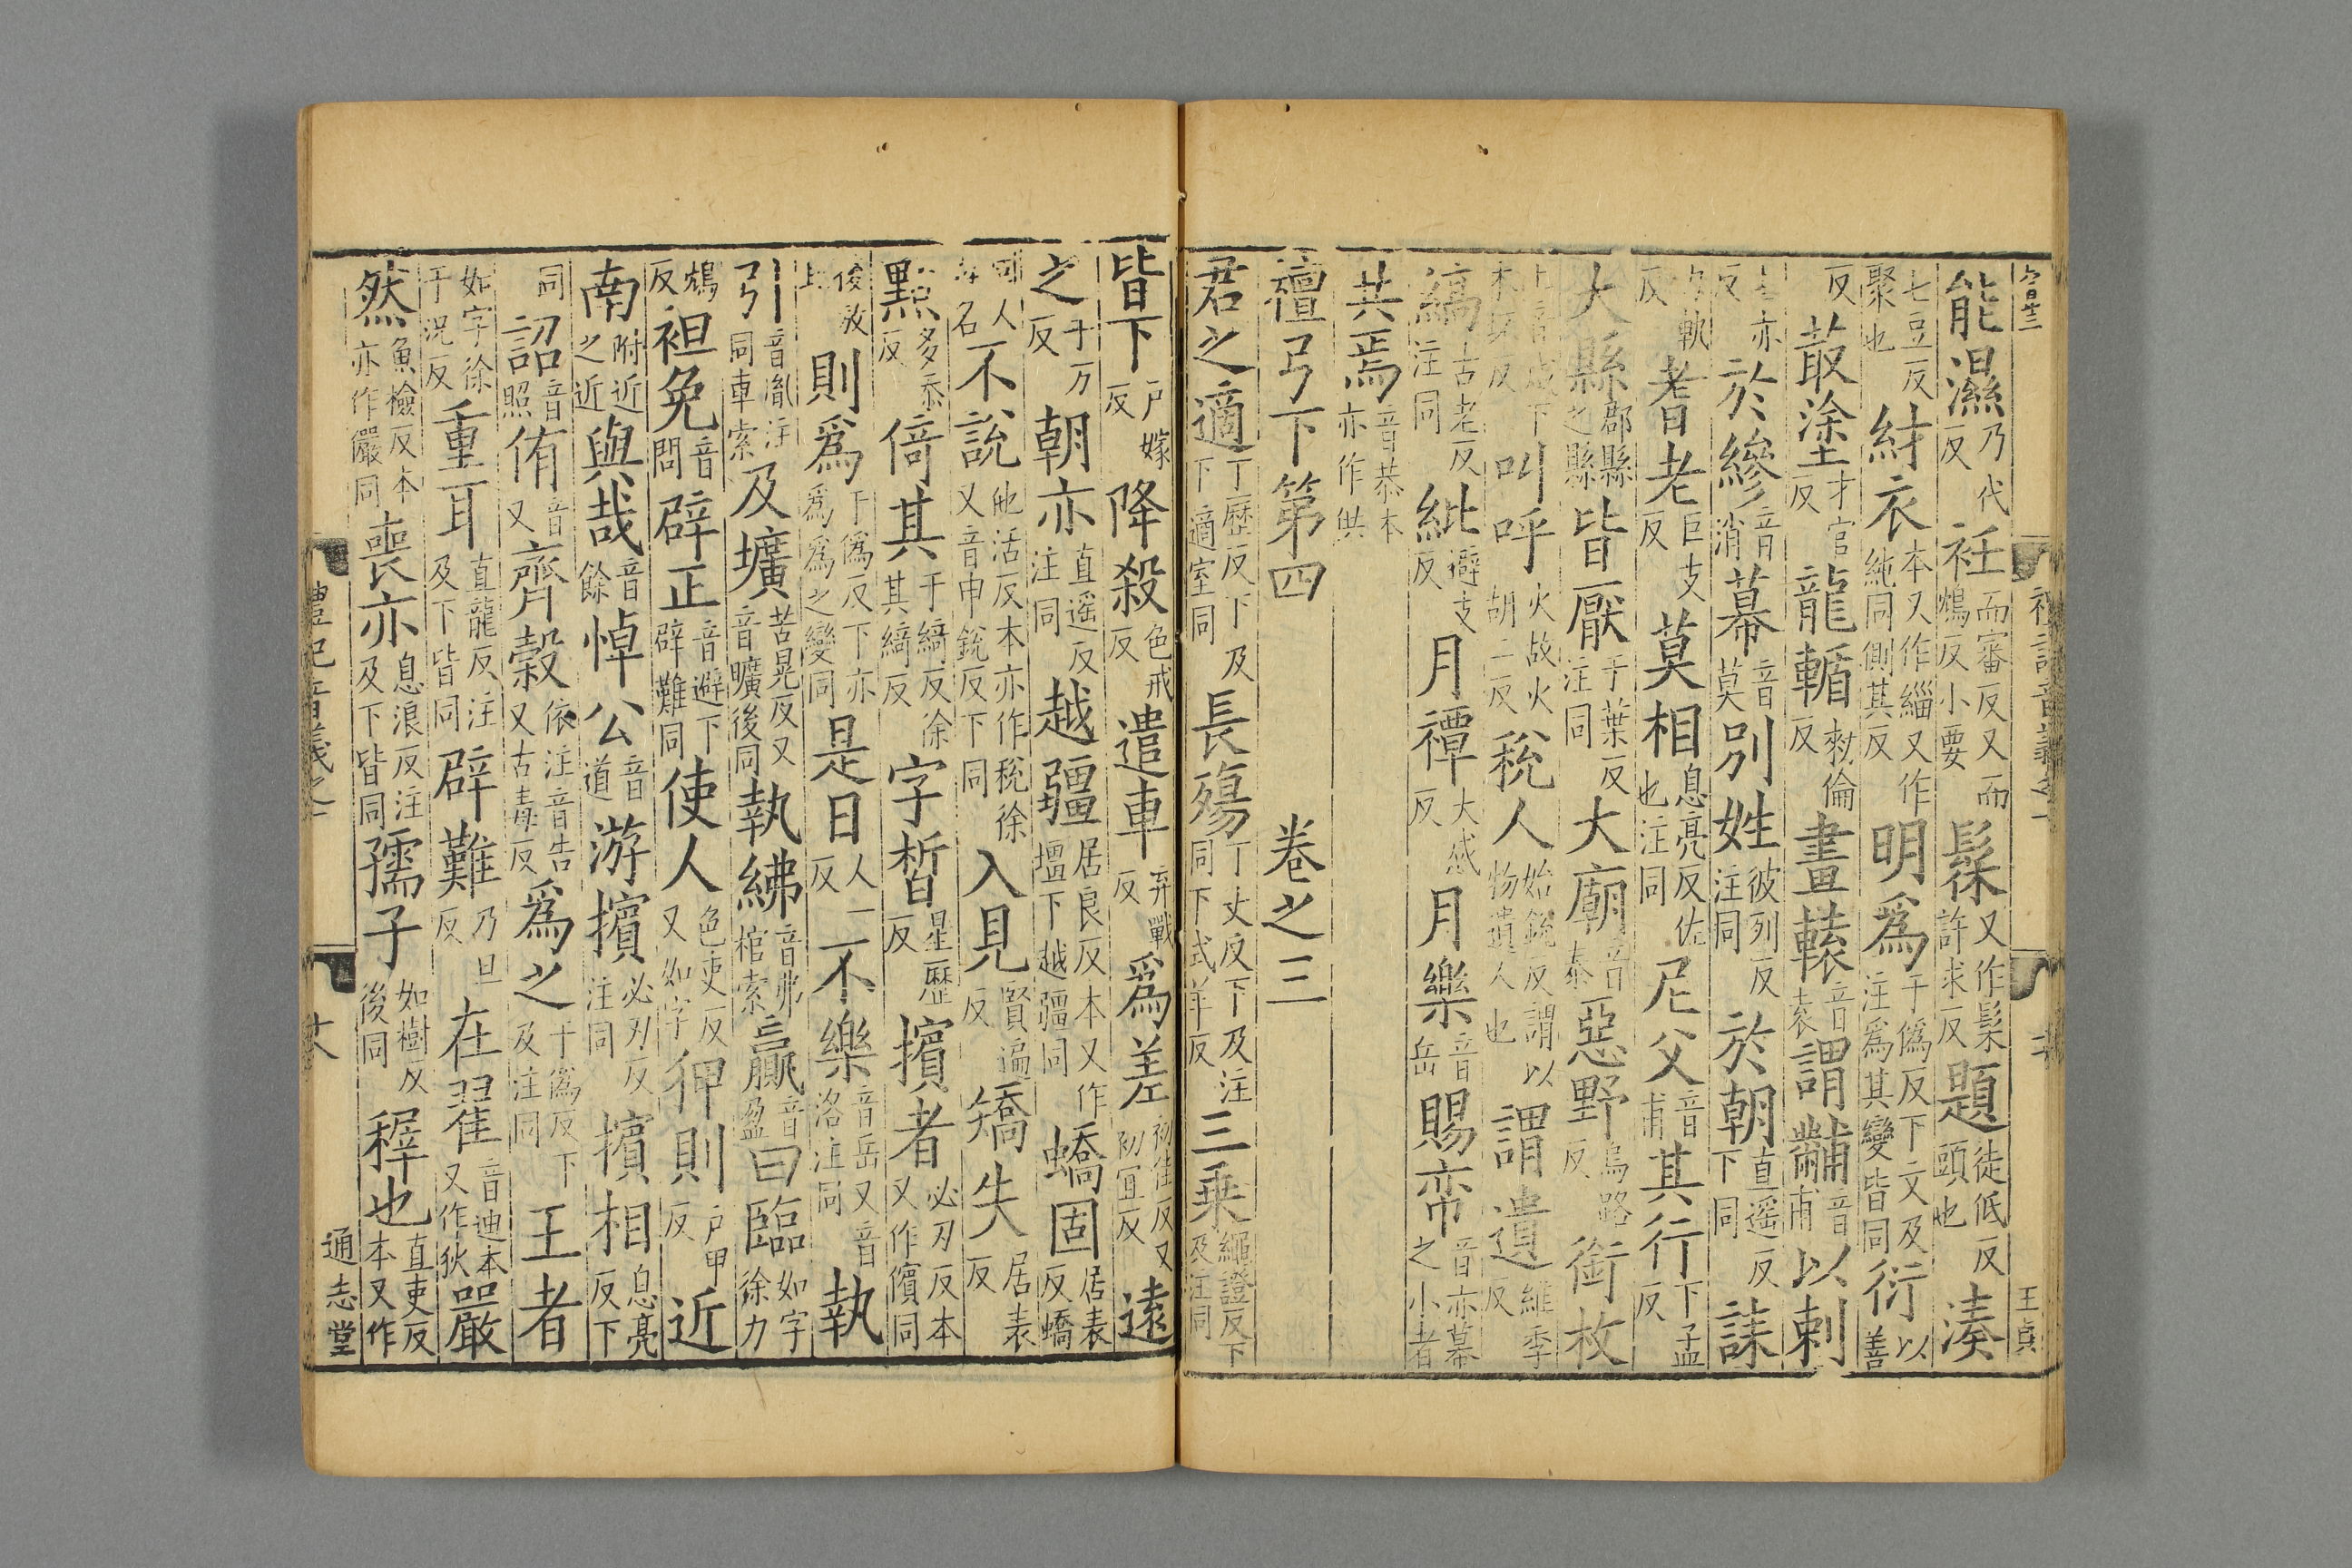 能濕乃代反衽而審反又而鴆反小要髹又作髤許求反題徒低反頭也湊
七豆反聚也紂衣本又作緇又作純同側其反明爲于僞反下文及注爲其變皆同衍以善
反菆塗才官反龍輴勑倫反畫轅音袁謂黼音甫以刺
七亦反於縿音消幕音莫別姓彼列反注同於朝直遥反下同誄
力軌反耆老巨支反莫相息亮反佐也注同尼父音甫其行下孟反
大縣郡縣之縣皆厭于葉反注同大廟音泰惡野烏路反銜枚
木坏反叫呼火故火胡二反稅人始銳反謂以物遺人也謂遺維季反
縞古老反注同紕避支反月禫大感反月樂音岳賜帟音亦幕之小者
共焉音恭本亦作供
檀弓下第四 卷之三
君之適丁歷反下及下適室同長殤丁丈反下及注同下式羊反三乗繩證反下及注同
皆下户嫁反降殺色戒反遣車弃戰反爲差初佳反又初宜反遠
之于万反朝亦直遥反注同越疆居良反本又作壃下越疆同蟜固居表反蟜
不說他活反本亦作稅徐又音申銳反下同入見賢遍反矯失居表反
點多忝反倚其于綺反徐其綺反字皙星歷反擯者必刃反本又作儐同
則爲于僞反下亦爲爲之變同是日人一反不樂音岳又音洛注同執
引音胤注同車索及壙苦晃反又音曠後同執紼音弗棺索贏音盈曰臨如字徐力
鴆反袒免音問辟正音避下辟難同使人色吏反又如字狎則户甲反近
南附近之近與哉音餘悼公音道游擯必刃反注同擯相息亮反下
同詔音照侑音又齊穀依注音告又古毒反爲之于僞反下及注同王者
如字徐于況反重耳直龍反注及下皆同辟難乃旦反在翟音迪本又作狄嚴
然魚檢反本亦作儼同喪亦息浪反注及下皆同孺子如樹反後同稺也直吏反本又作
通志堂